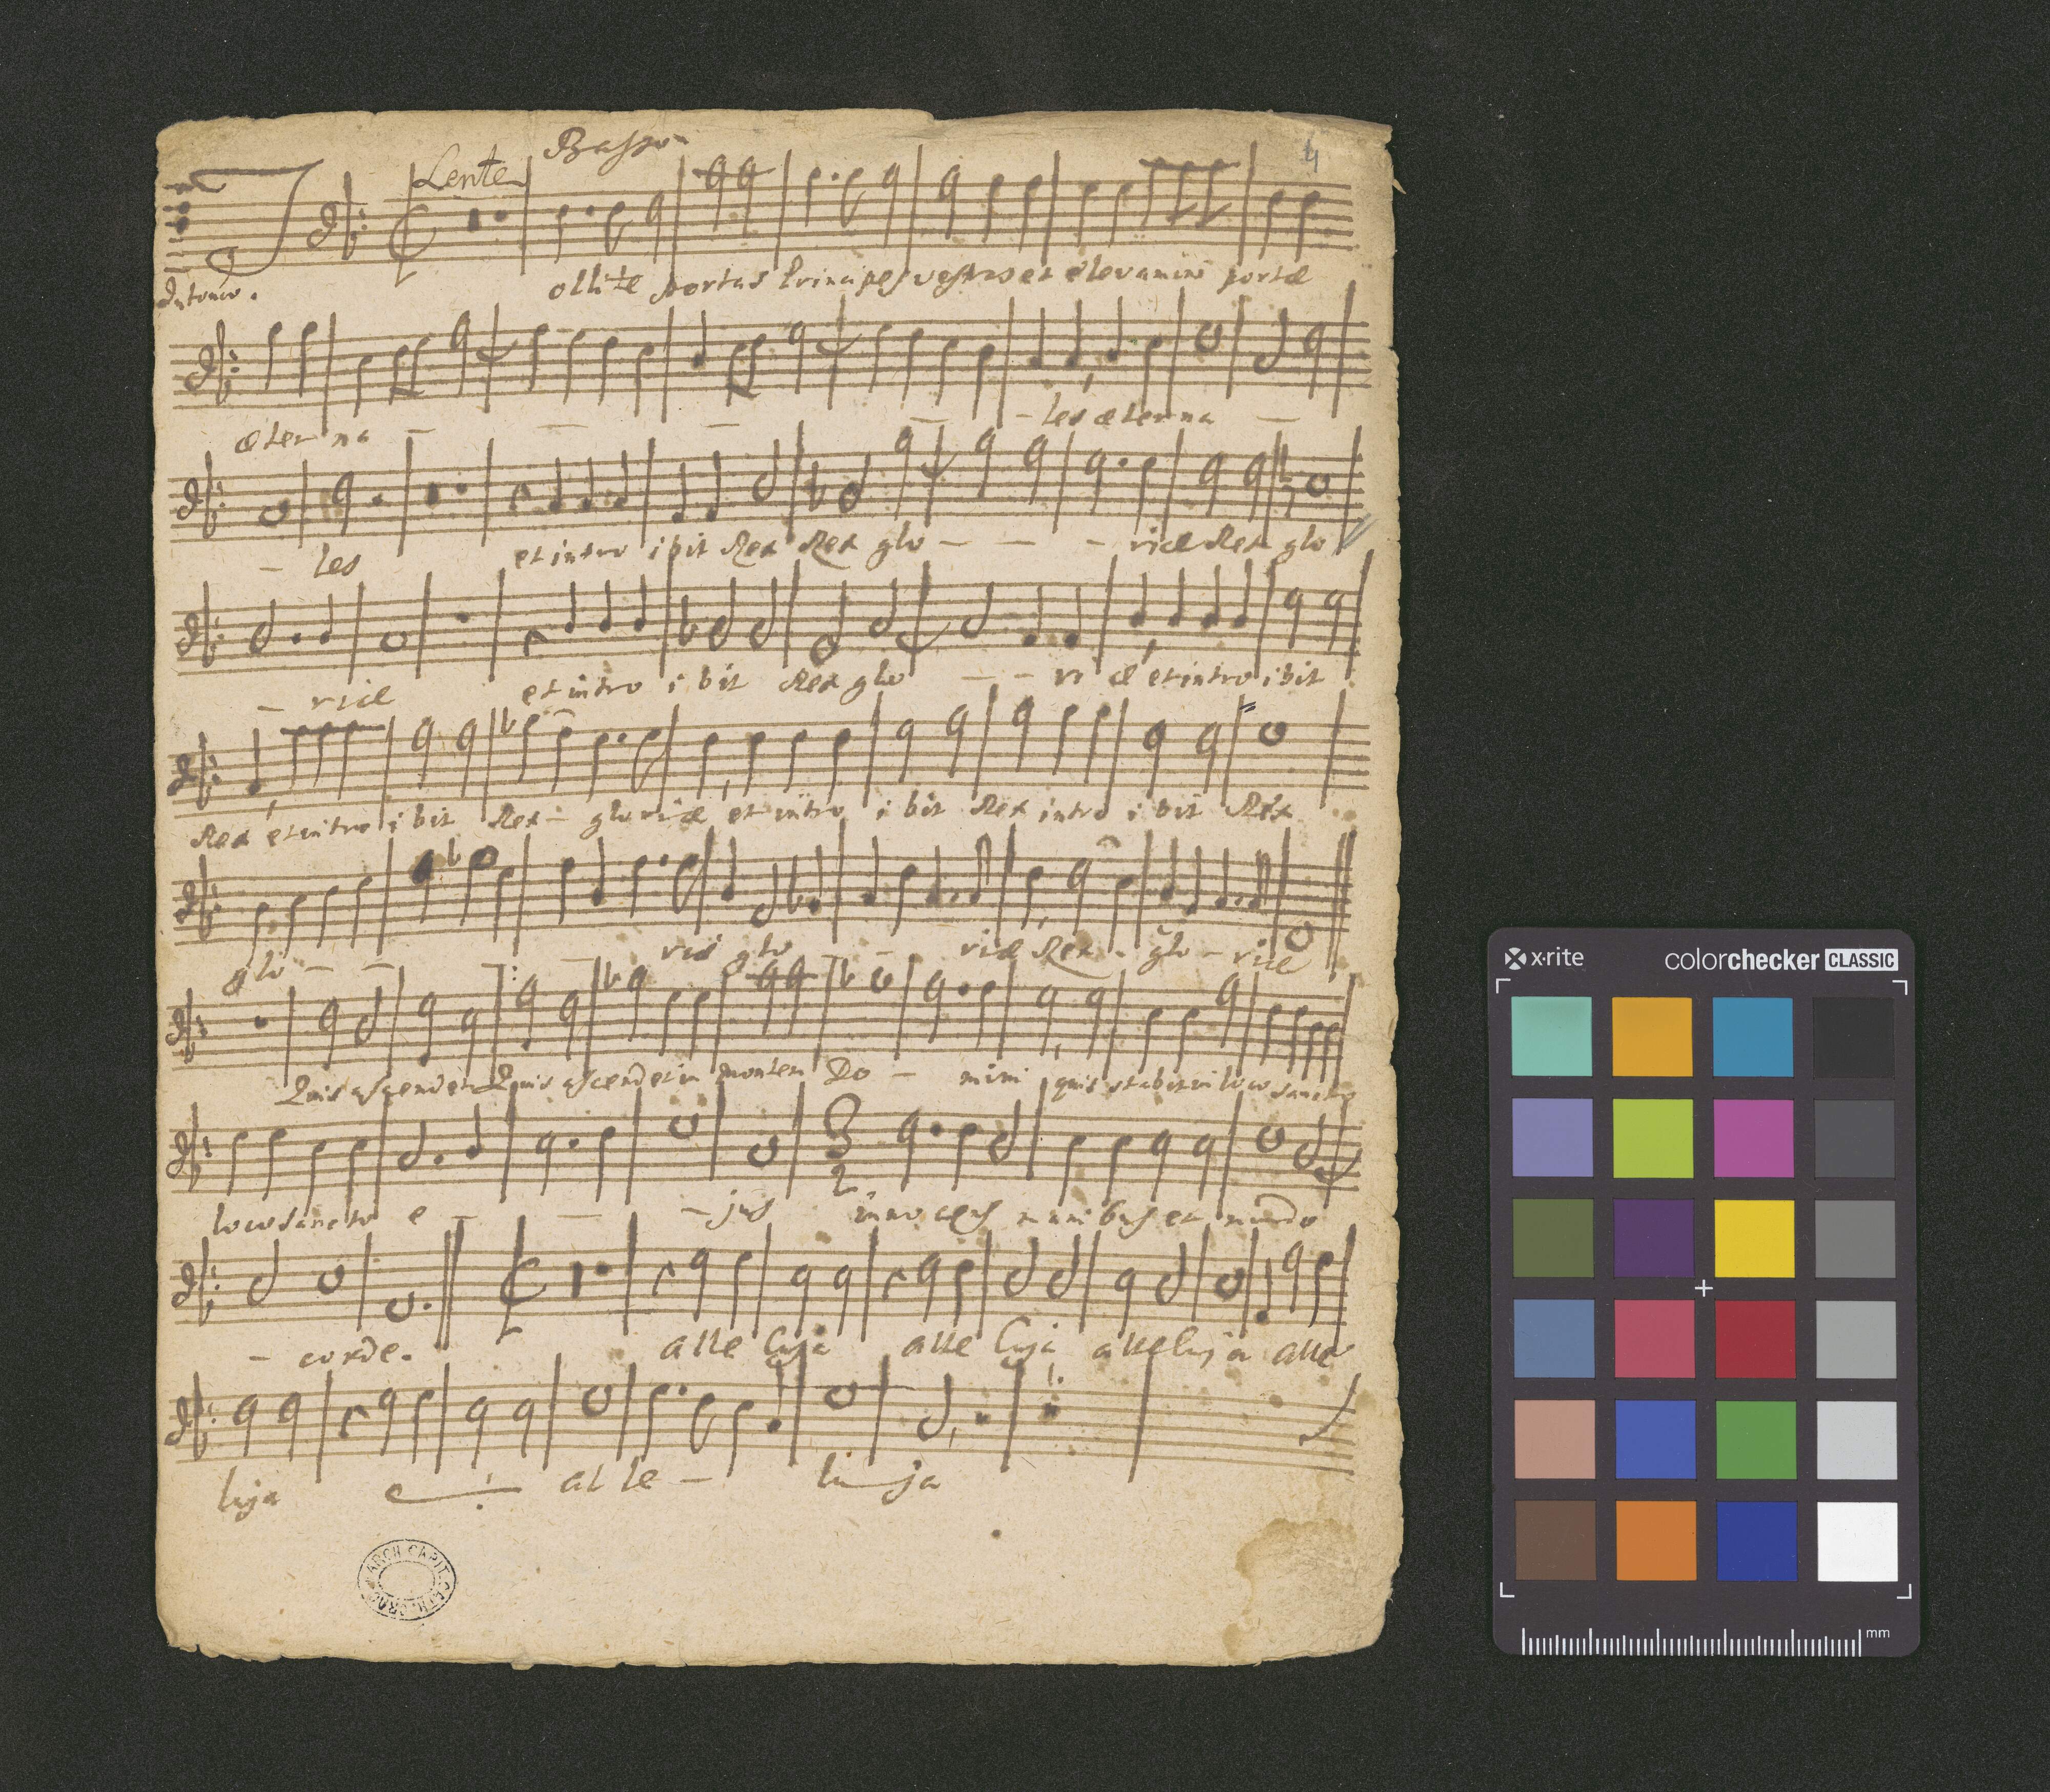 Basso
4
Lente
Intonuo.
Tollite portas Principes vestras et elevamini portæ
æter na - - - - - les æterna -
- les et intro ibit Rex Rex glo - - - riæ Rex glo
- riæ et intro i bit Rex glo - - ri æ et intro ibit
Rex et intro i bit Rex - gloriæ et intro i bit Rex intro i bit Rex
glo - - - ris glo - - riæ Rex - glo - riæ
Quis ascendet Quis ascendet in montem Do - mini quis stabit in loco sancto
loco sancto e - - - jus innocens manibus et mundo
- corde. alle luja alle luja alleluja alle
luja al le - lu ja
ARCH. CAPIT.
x·rite colorchecker CLASSIC
mm